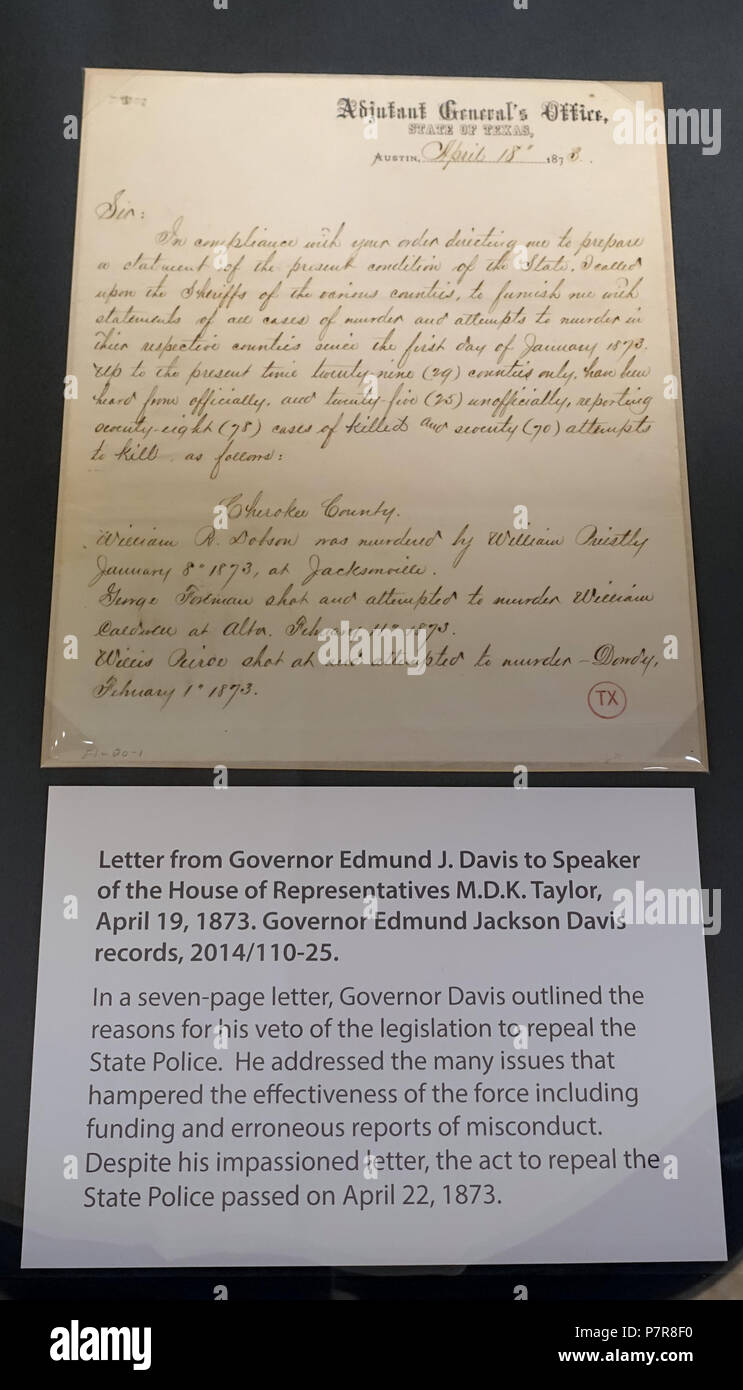 Adjutant General's Office,
STATE OF TEXAS,
AUSTIN, April 18" 1873.
Sir:
In compliance with your order directing me to prepare
a statment of the present condition of the State, I called
upon the Sheriffs of the various counties, to furnish me with
statements of all cases of murder and attempts to murder in
their respective counties since the first day of January 1873.
Up to the present time twenty-nine (29) counties only, have been
heard from officially, and twenty-five (25) unofficially, reporting
seventy-eight (78) cases of killed and seventy (70) attempts
to kill, as follows:
Cherokee County.
William R. Dobson was murdered by William Priestly
January 8" 1873, at Jacksonville.
George Foreman shot and attempted to murder William
Caldwell at Alto, February 11" 1873.
Willis Peirce shot at and attempted to murder – Dowdy,
February 1" 1873.
TX
Letter from Governor Edmund J. Davis to Speaker
of the House of Representatives M.D.K. Taylor,
April 19, 1873. Governor Edmund Jackson Davis
records, 2014/110-25.
In a seven-page letter, Governor Davis outlined the
reasons for his veto of the legislation to repeal the
State Police. He addressed the many issues that
hampered the effectiveness of the force including
funding and erroneous reports of misconduct.
Despite his impassioned letter, the act to repeal the
State Police passed on April 22, 1873.
alamy
Image ID: P7R8F0
www.alamy.com